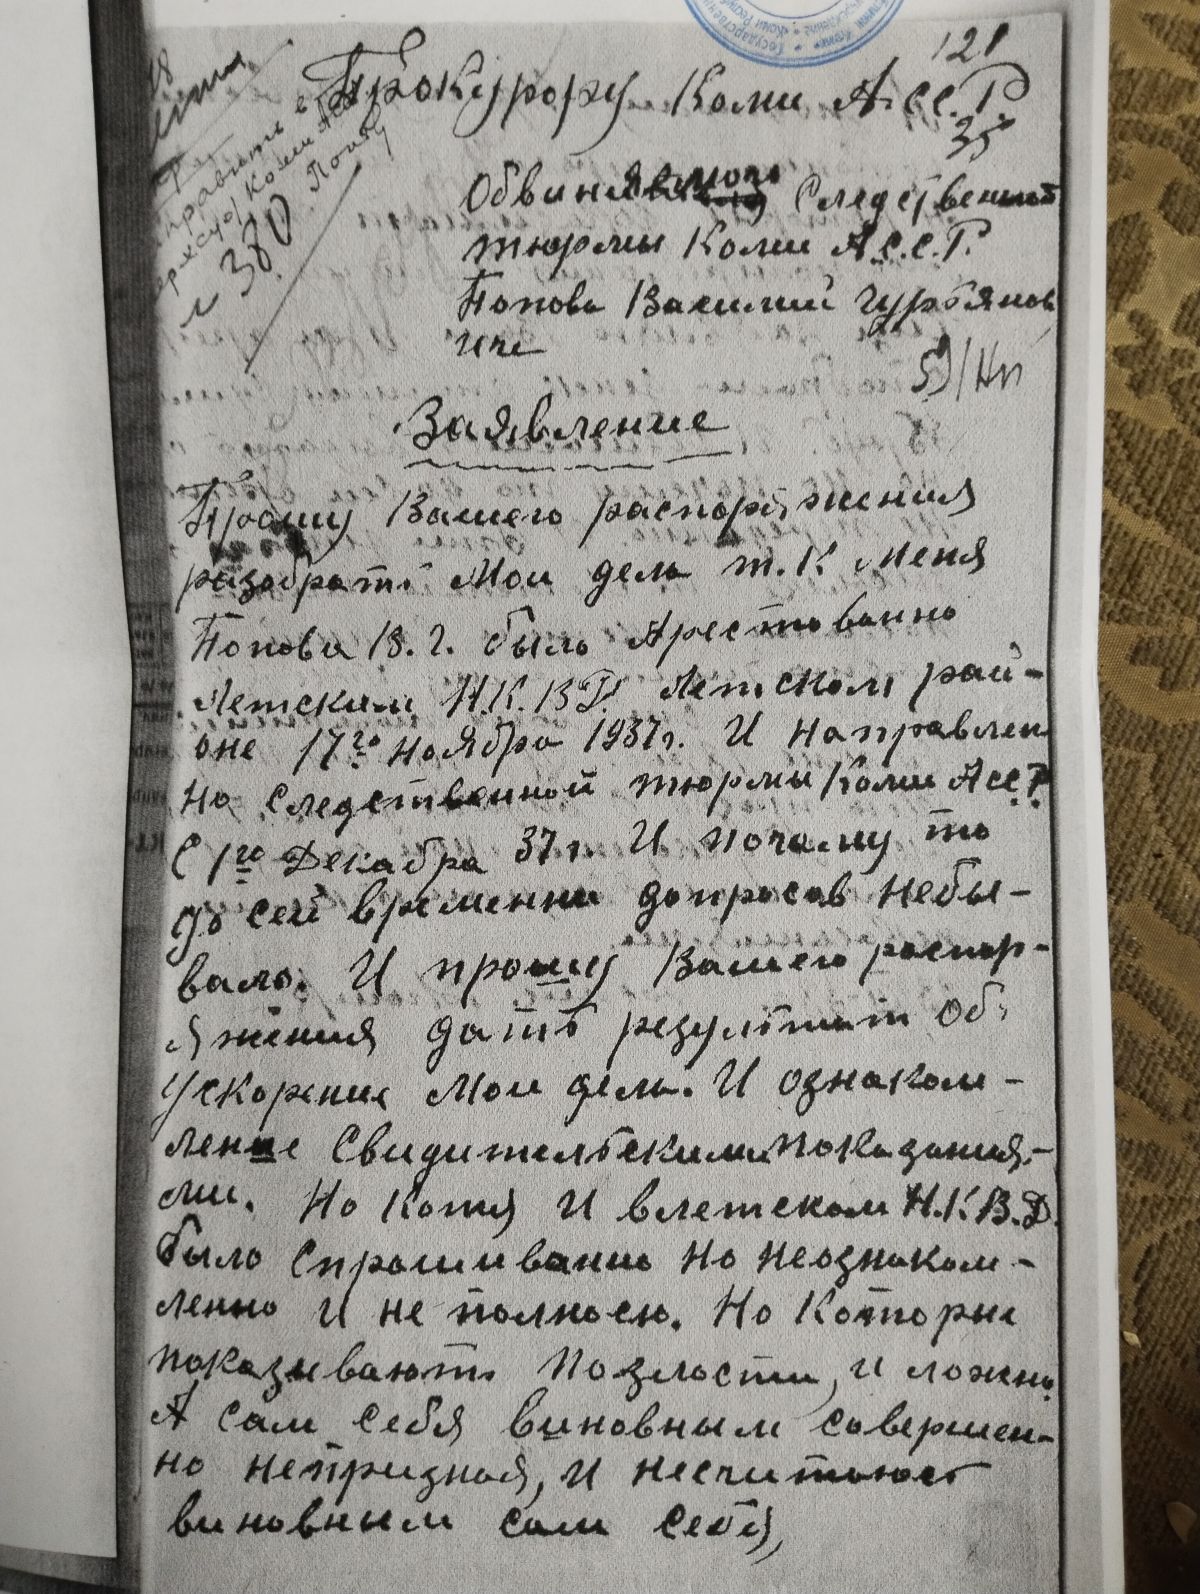 121
Прокурору Коми А.С.С.Р.
35
Обвиняемого Следственной
тюрмы Коми А.С.С.Р.
Попова Василий Гурьянов
иче
Заявление
Прошу Вашего распоряжения
разобрать Мои дела т.к меня
Попова В.Г. было Арестованно
Летским Н.К.В.Д. Летском рай-
оне 17го ноября 1937г. И направлен
но Следственной тюрмы Коми АССР
С 1го Декабря 37г. И почему то
до сей временни допросов небы-
вало. И прошу Вашего распор-
яжения дать результат Об
Ускорение Мои дела. И ознаком-
ление Свидительскими показания-
ми. Но Хотя И влетском Н.К.В.Д.
было Спрошиванно но неознаком-
ленно И не полносю. Но Которые
показывают позлости, и ложно.
А сам себя виновным совершен-
но непризная, И несчитаюсь
виновным сам себя,
380